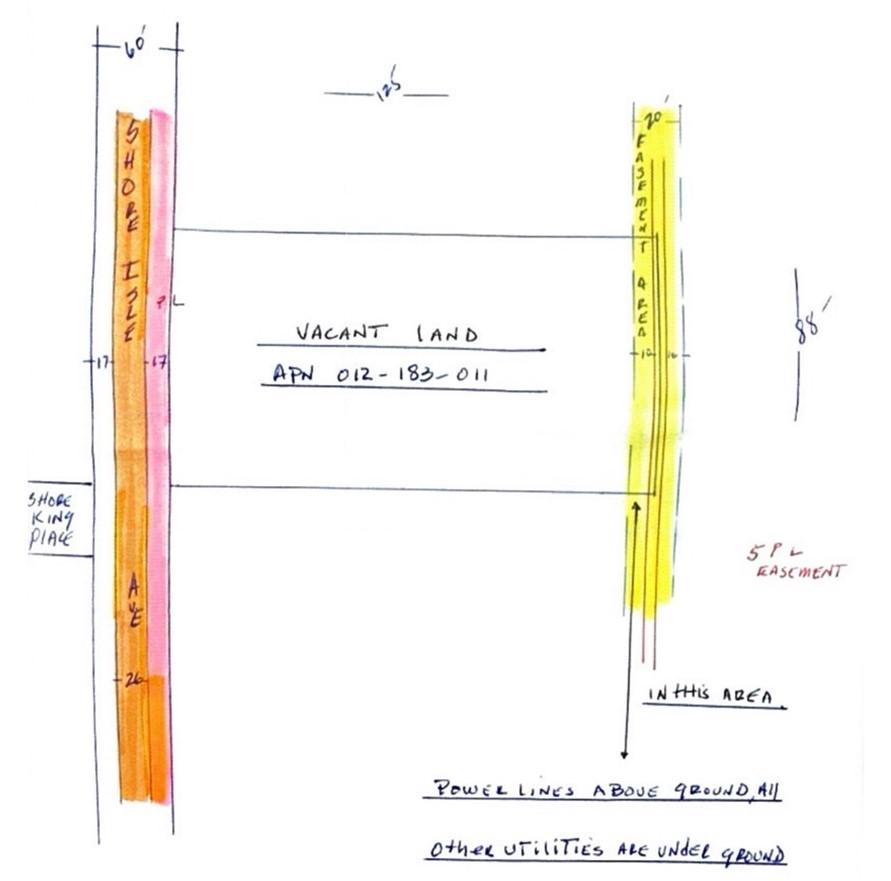 60'
125'
20'
SHORE ISLE AVE
EASEMENT AREA
PL
88'
VACANT LAND
17
17
10
10
APN 012-183-011
SHORE
KING
PLACE
5 P L
EASEMENT
26
IN THIS AREA.
POWER LINES ABOVE GROUND, All
Other UTILITIES ARE UNDER GROUND